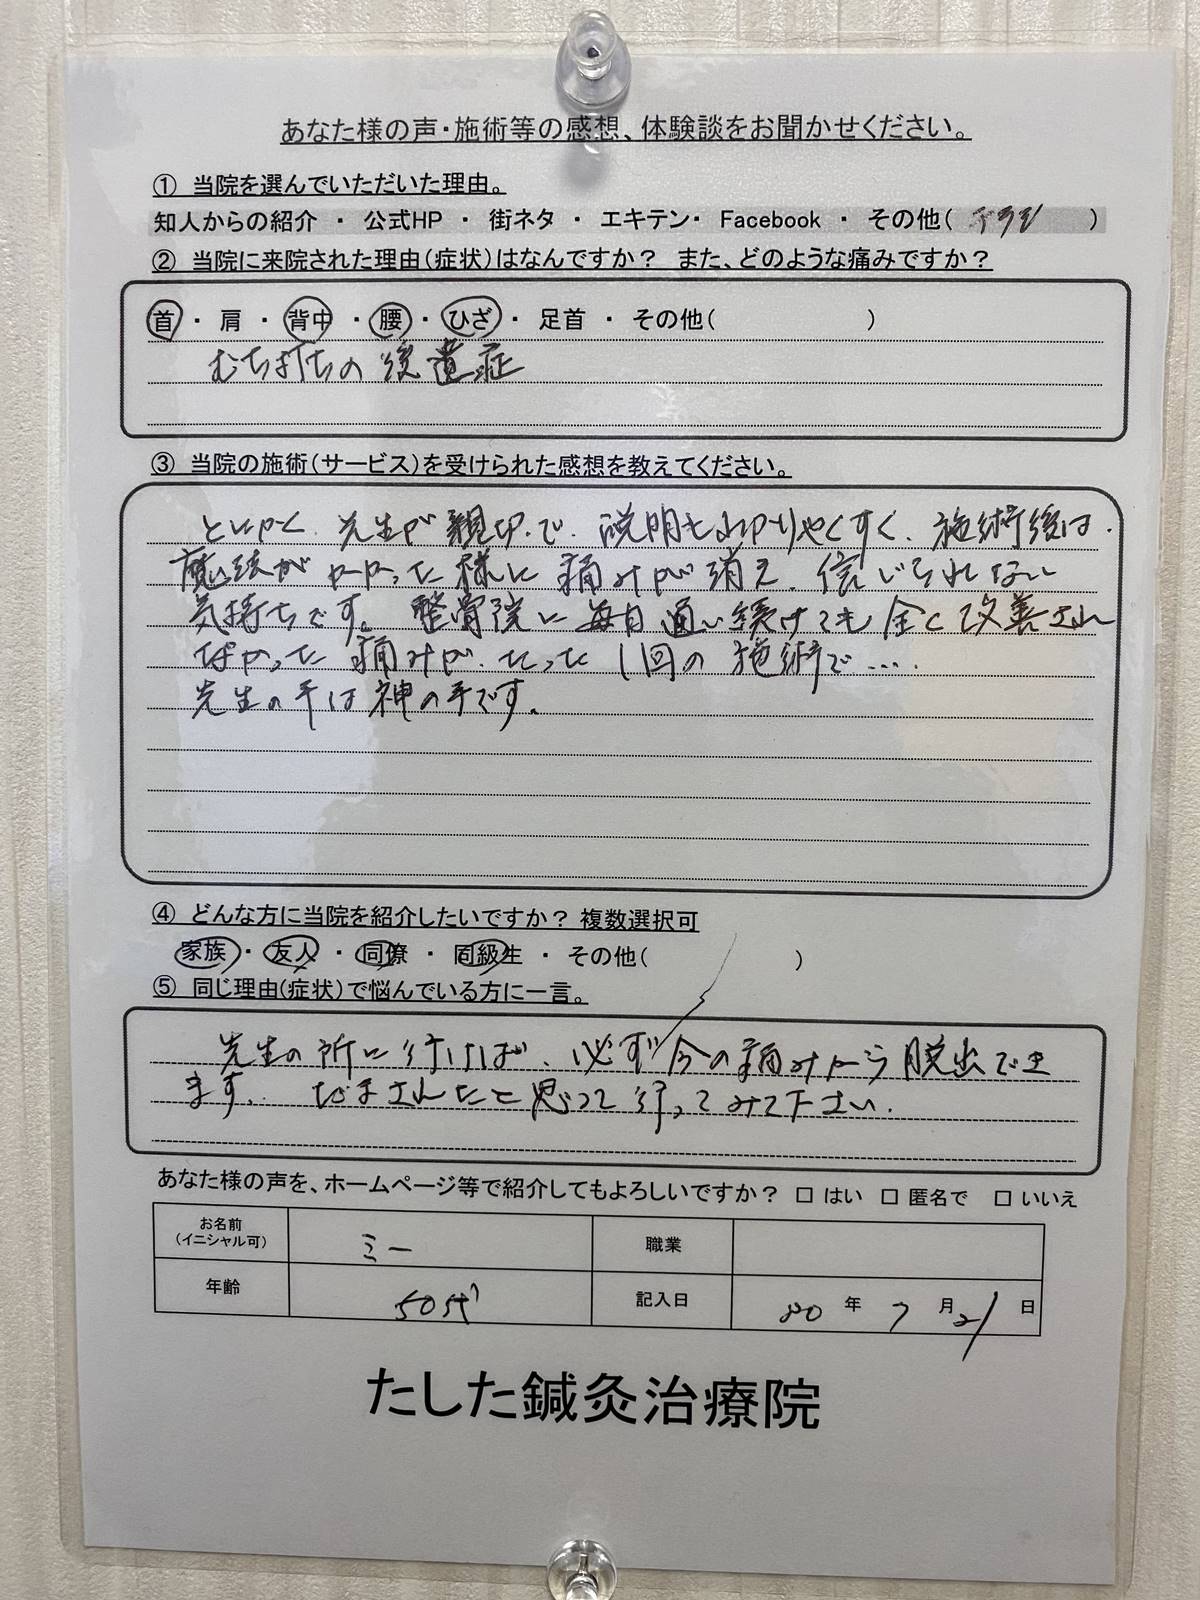 あなた様の声・施術等の感想、体験談をお聞かせください。
① 当院を選んでいただいた理由。
知人からの紹介 ・ 公式HP ・ 街ネタ ・ エキテン・ Facebook ・ その他( チラシ )
② 当院に来院された理由(症状)はなんですか? また、どのような痛みですか?
首 ・ 肩 ・ 背中 ・ 腰 ・ ひざ ・ 足首 ・ その他( )
むち打ちの後遺症
③ 当院の施術(サービス)を受けられた感想を教えてください。
とにかく 先生が親切で、説明もわかりやくすく、施術後は、
魔法がかかった様に痛みが消え、信じられない
気持ちです。整骨院に毎日通い続けても全く改善され
なかった痛みが、たった1回の施術で….
先生の手は神の手です。
④ どんな方に当院を紹介したいですか? 複数選択可
家族 ・ 友人 ・ 同僚 ・ 同級生 ・ その他( )
⑤ 同じ理由(症状)で悩んでいる方に一言。
先生の所に行けば、必ず今の痛みから脱出でき
ます。だまされたと思って行ってみて下さい。
あなた様の声を、ホームページ等で紹介してもよろしいですか? □ はい □ 匿名で □ いいえ
お名前 ミー 職業
(イニシャル可)
年齢 50代 記入日 年 7 月 21 日
たした鍼灸治療院